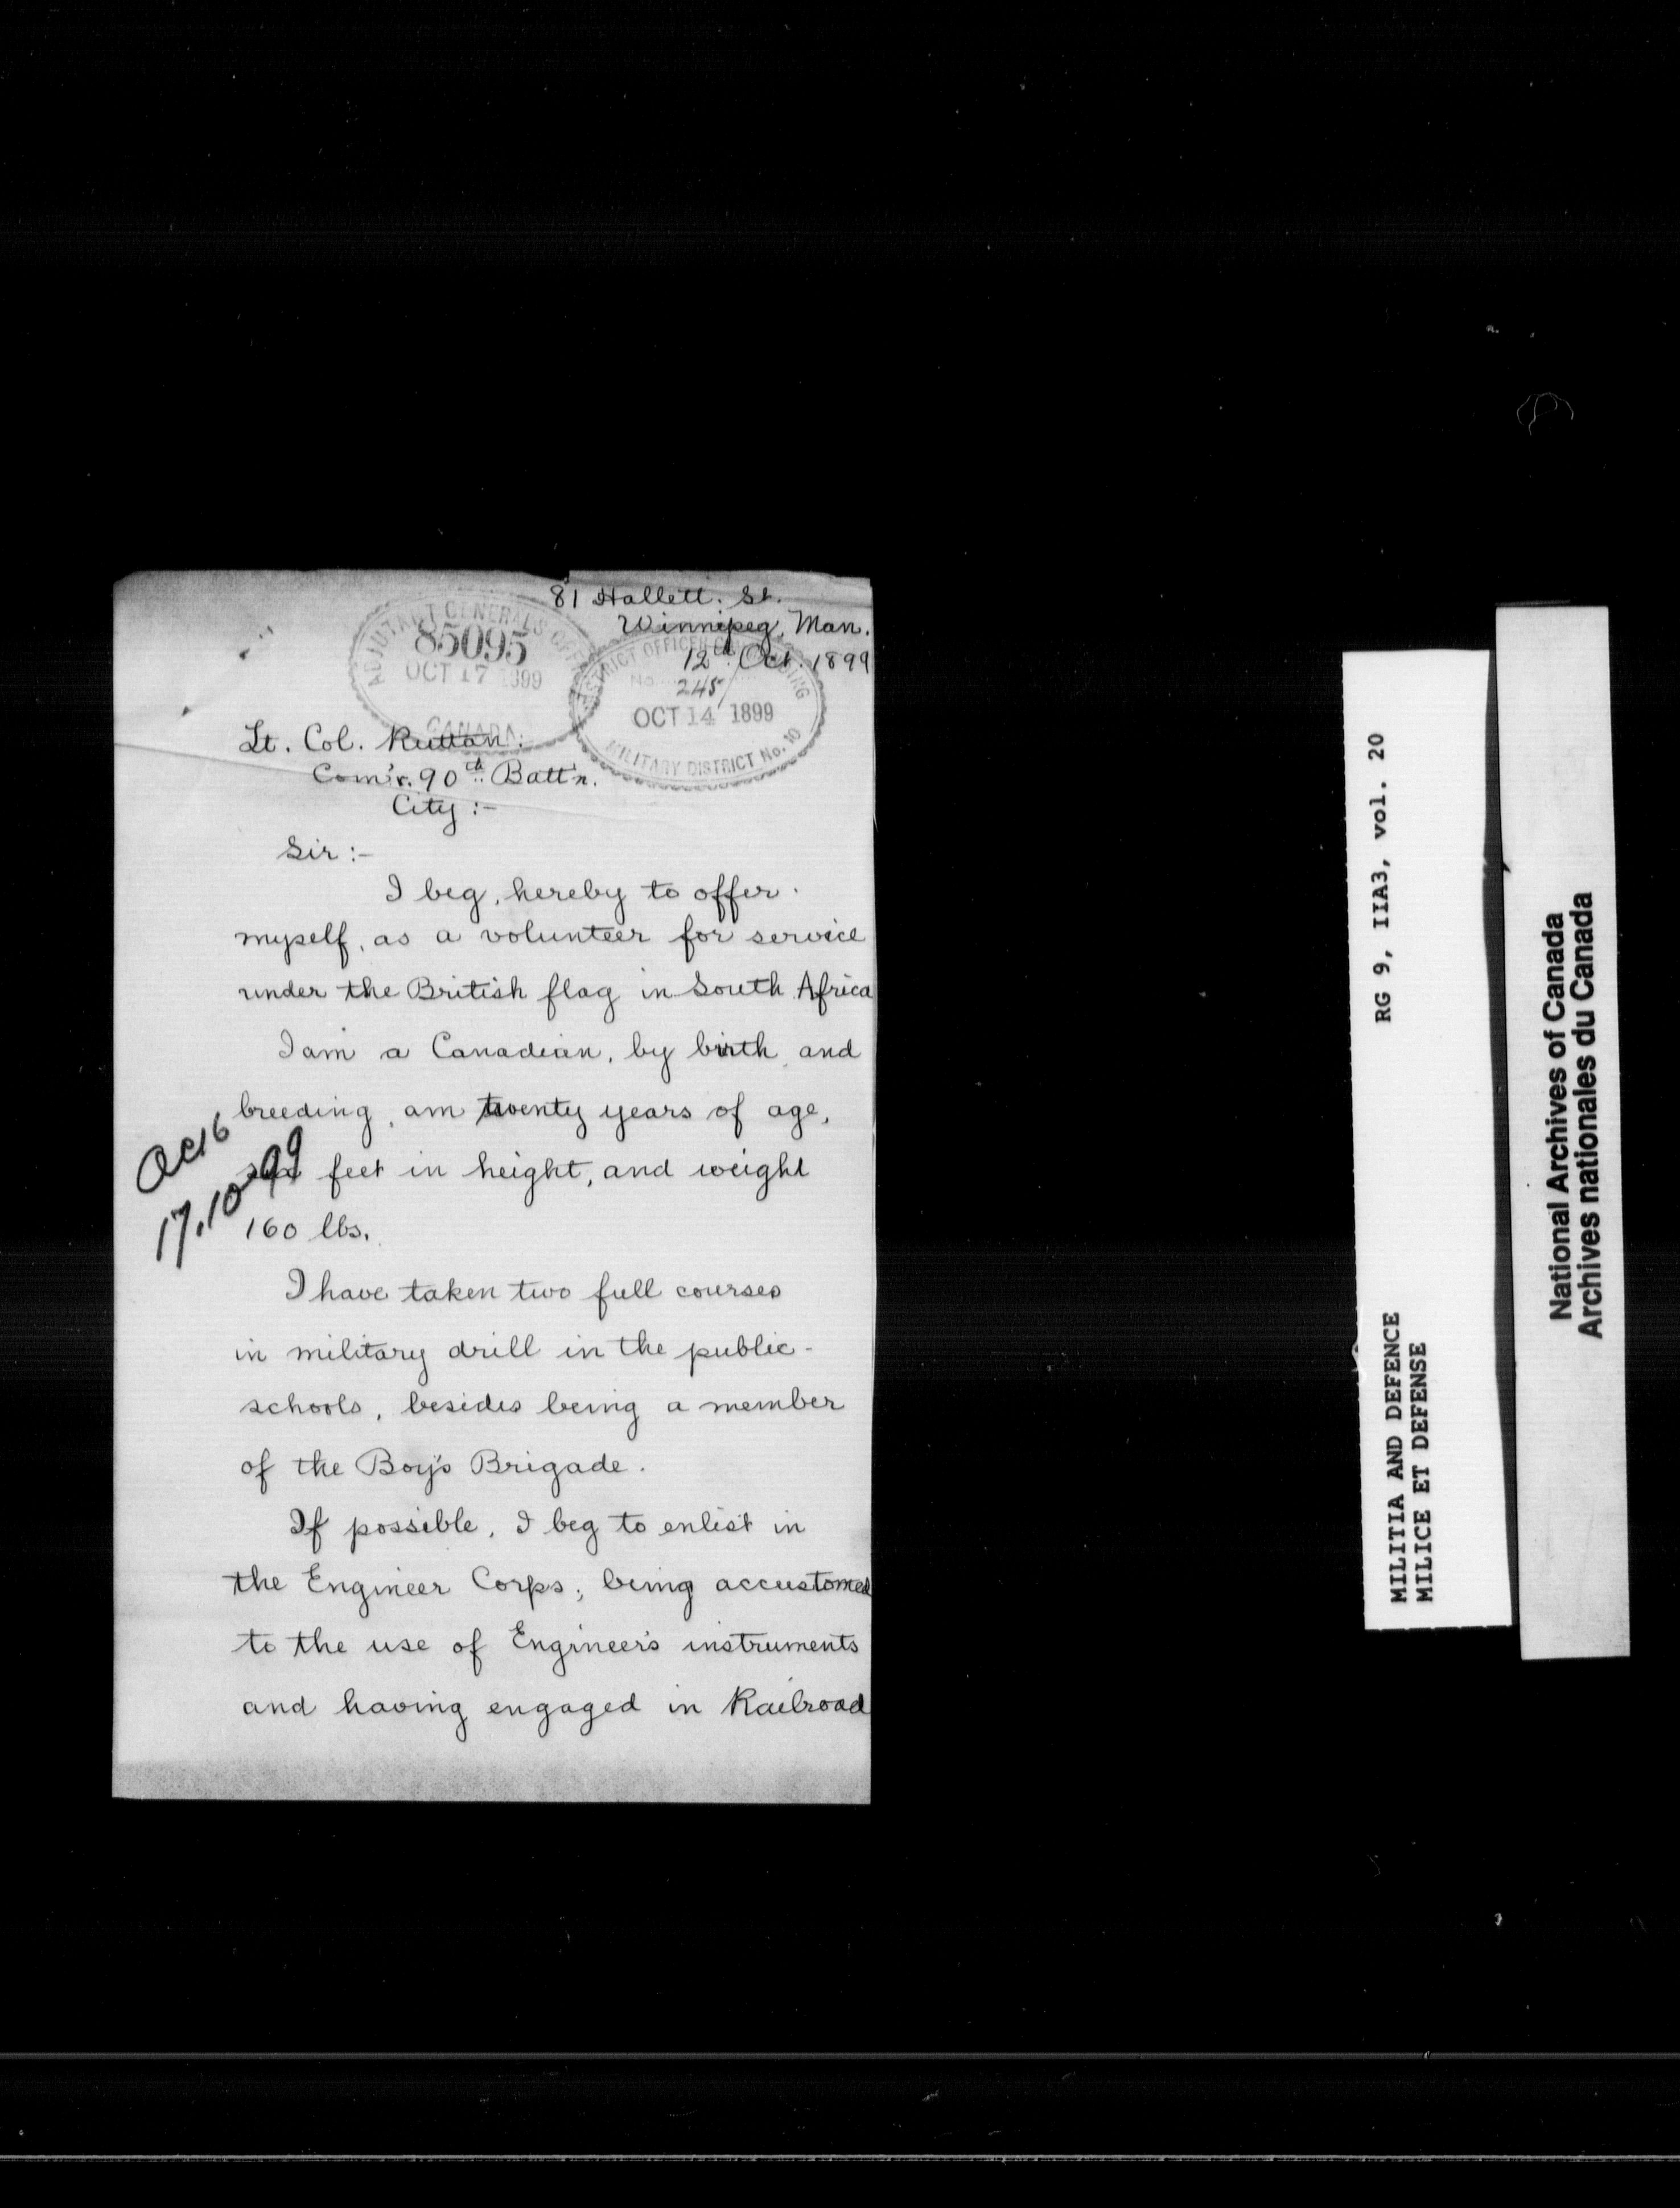 81 Hallett. St.
Winnipeg, Man.
12th Oct. 1899
ADJUTANT GENERAL'S OFFICE
85095
OCT 17 1899
CANADA
DISTRICT OFFICER COMMANDING
No. 245
OCT 14 1899
MILITARY DISTRICT No. 10
Lt. Col. Ruttan.
Com'r. 90th Batt'n.
City :-
Sir :-
I beg, hereby to offer
myself, as a volunteer for service
under the British flag in South Africa
I am a Canadian, by birth and
breeding, am twenty years of age,
six feet in height, and weight
160 lbs.
17.10.99
I have taken two full courses
in military drill in the public-
schools, besides being a member
of the Boy's Brigade.
If possible, I beg to enlist in
the Engineer Corps; being accustomed
to the use of Engineer's instruments
and having engaged in Railroad
RG 9, IIA3, vol. 20
MILITIA AND DEFENCE
MILICE ET DEFENSE
National Archives of Canada
Archives nationales du Canada